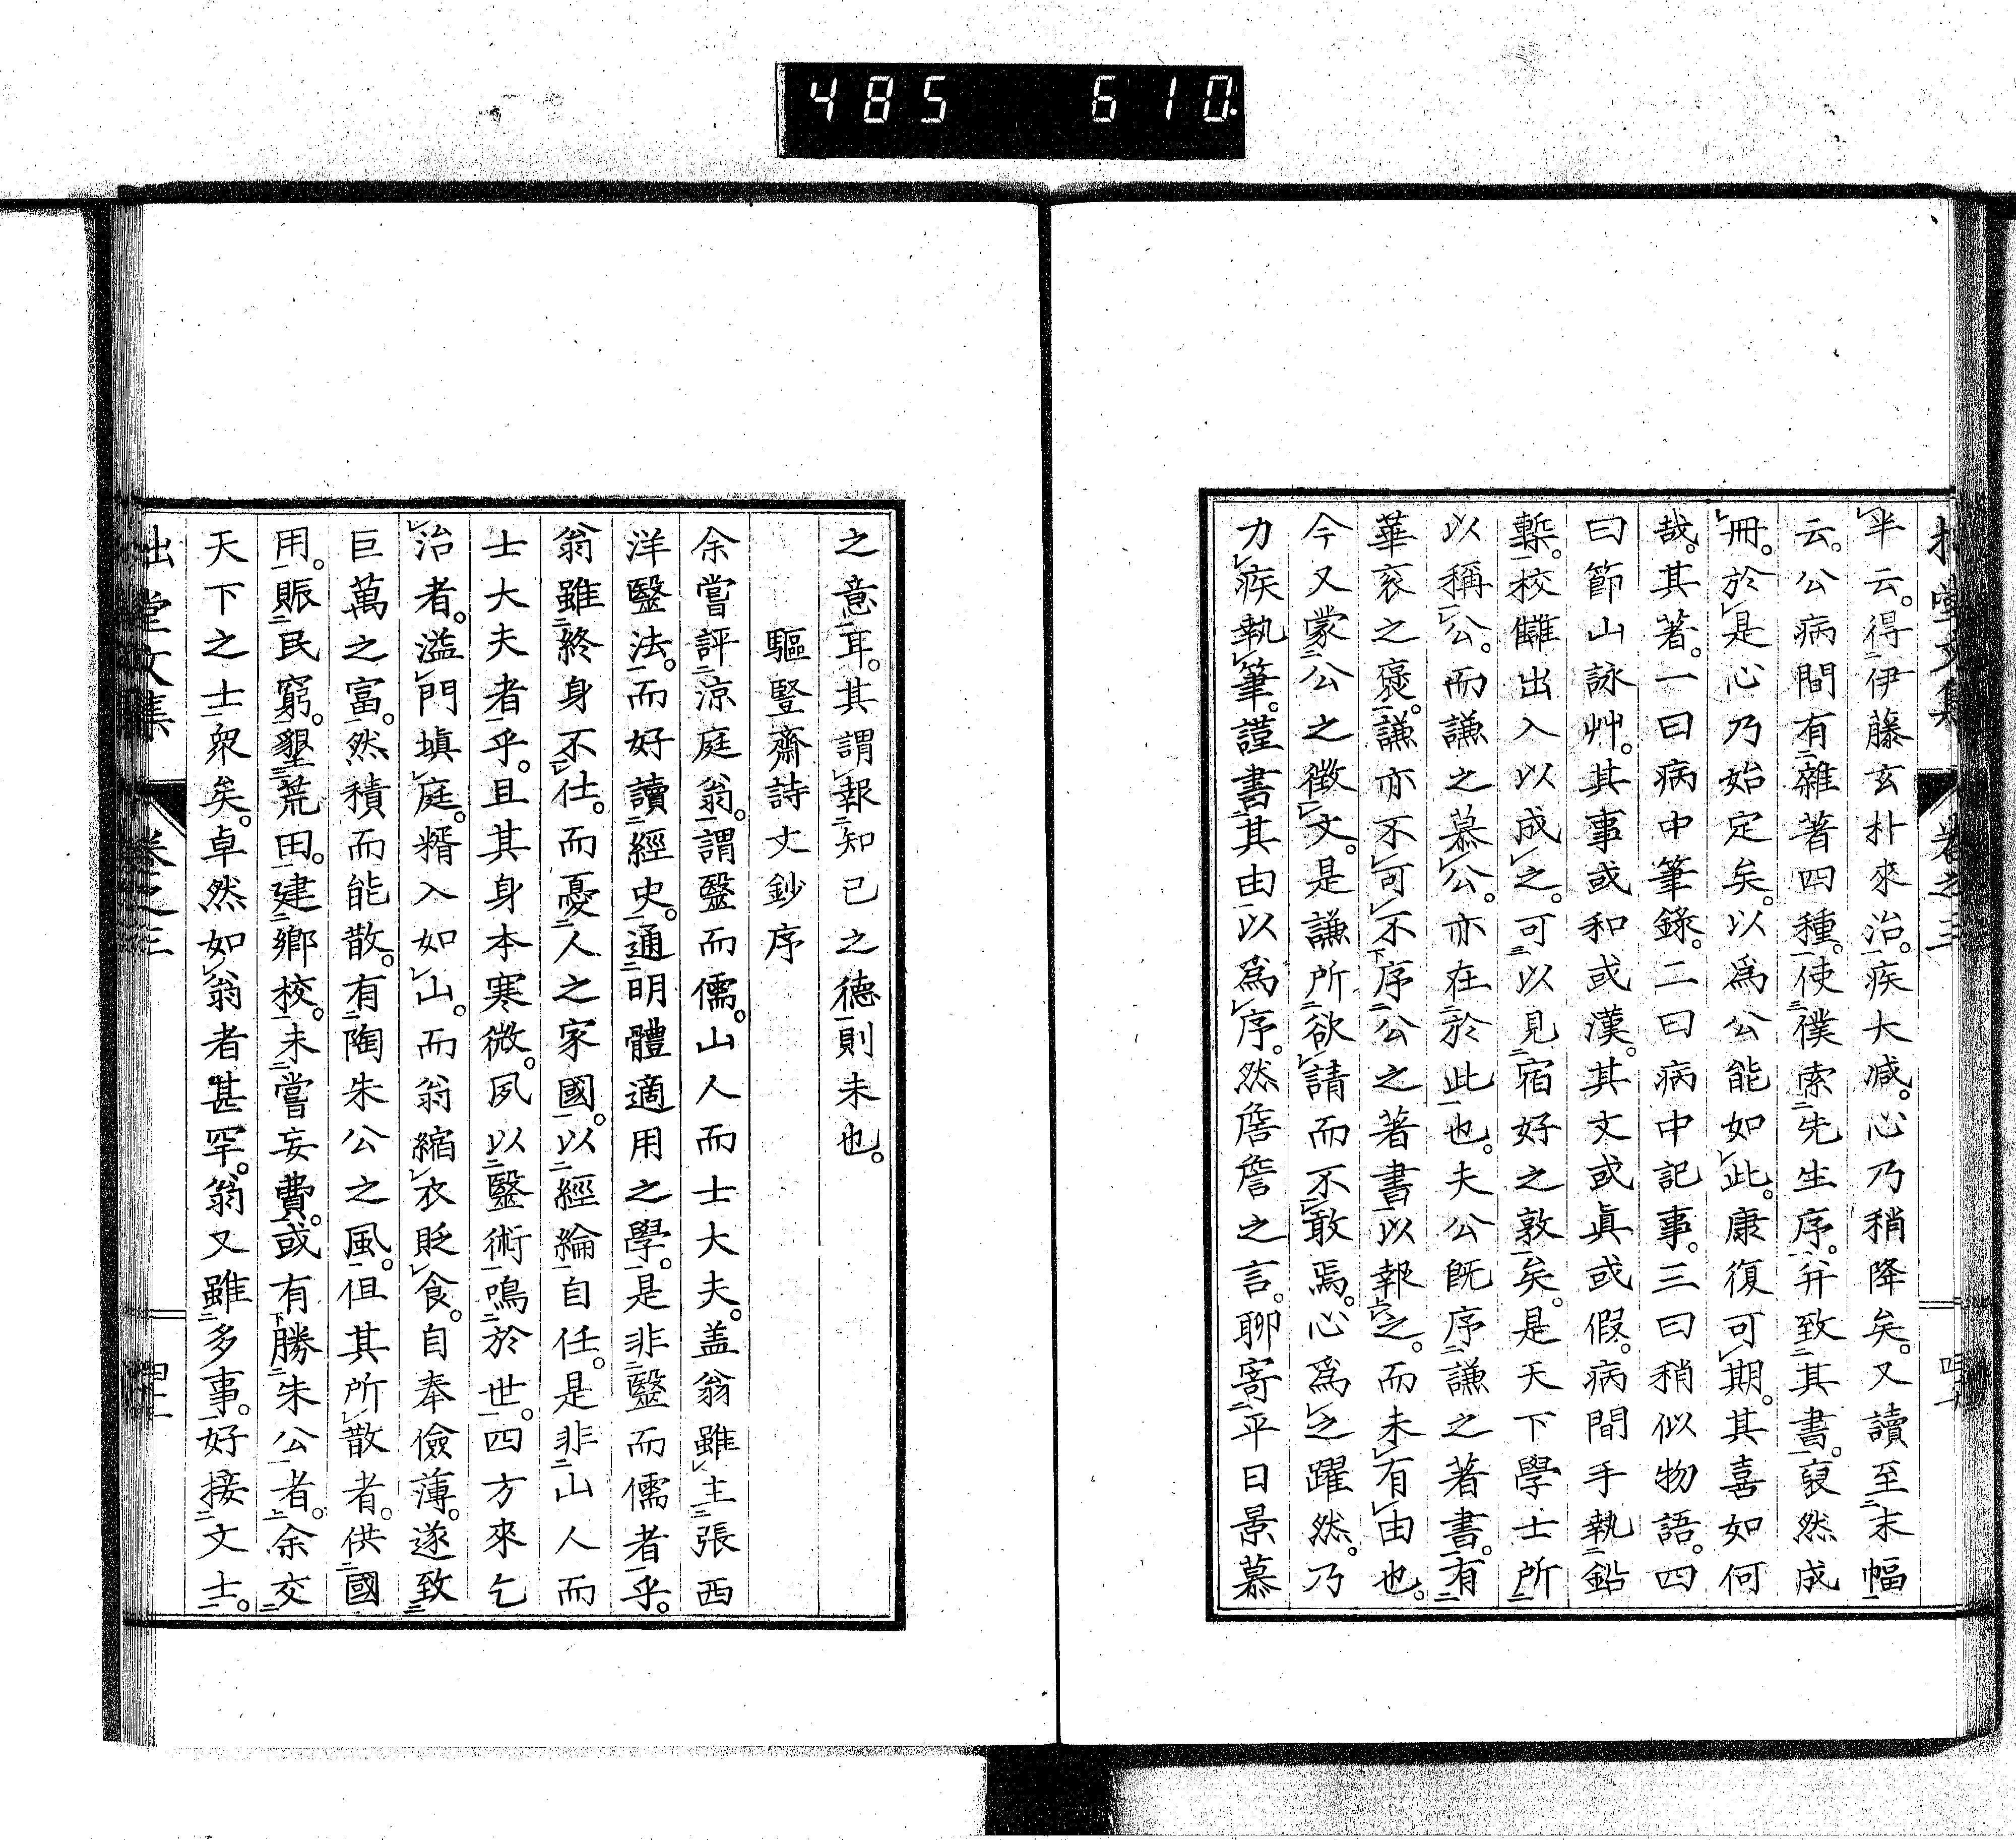 485 610
半云。得伊藤玄朴來治。疾大減。心乃稍降矣。又讀至末幅
云。公病間有雜著四種。使僕索先生序。幷致其書。裒然成
冊。於是心乃始定矣。以爲公能如此。康復可期。其喜如何
哉。其著。一曰病中筆錄。二曰病中記事。三曰稍似物語。四
曰節山詠艸。其事或和或漢。其文或眞或假。病間手執鉛
槧。校讎出入以成之。可以見宿好之敦矣。是天下學士所
以稱公。而謙之慕公。亦在於此也。夫公旣序謙之著書。有
華袞之褒。謙亦不可不序公之著書以報之。而未有由也。
今又蒙公之徵文。是謙所欲請而不敢焉。心爲之躍然。乃
力疾執筆。謹書其由以爲序。然詹詹之言。聊寄平日景慕
之意耳。其謂報知己之德則未也。
驅豎齋詩文鈔序
余嘗評涼庭翁。謂醫而儒。山人而士大夫。盖翁雖主張西
洋醫法。而好讀經史。通明體適用之學。是非醫而儒者乎。
翁雖終身不仕。而憂人之家國。以經綸自任。是非山人而
士大夫者乎。且其身本寒微。夙以醫術鳴於世。四方來乞
治者。溢門塡庭。糈入如山。而翁縮衣貶食。自奉儉薄。遂致
巨萬之富。然積而能散。有陶朱公之風。但其所散者。供國
用。賑民窮。墾荒田。建鄉校。未嘗妄費。或有勝朱公者。余交
天下之士衆矣。卓然如翁者甚罕。翁又雖多事。好接文士。
拙堂文集 卷之三 四十一